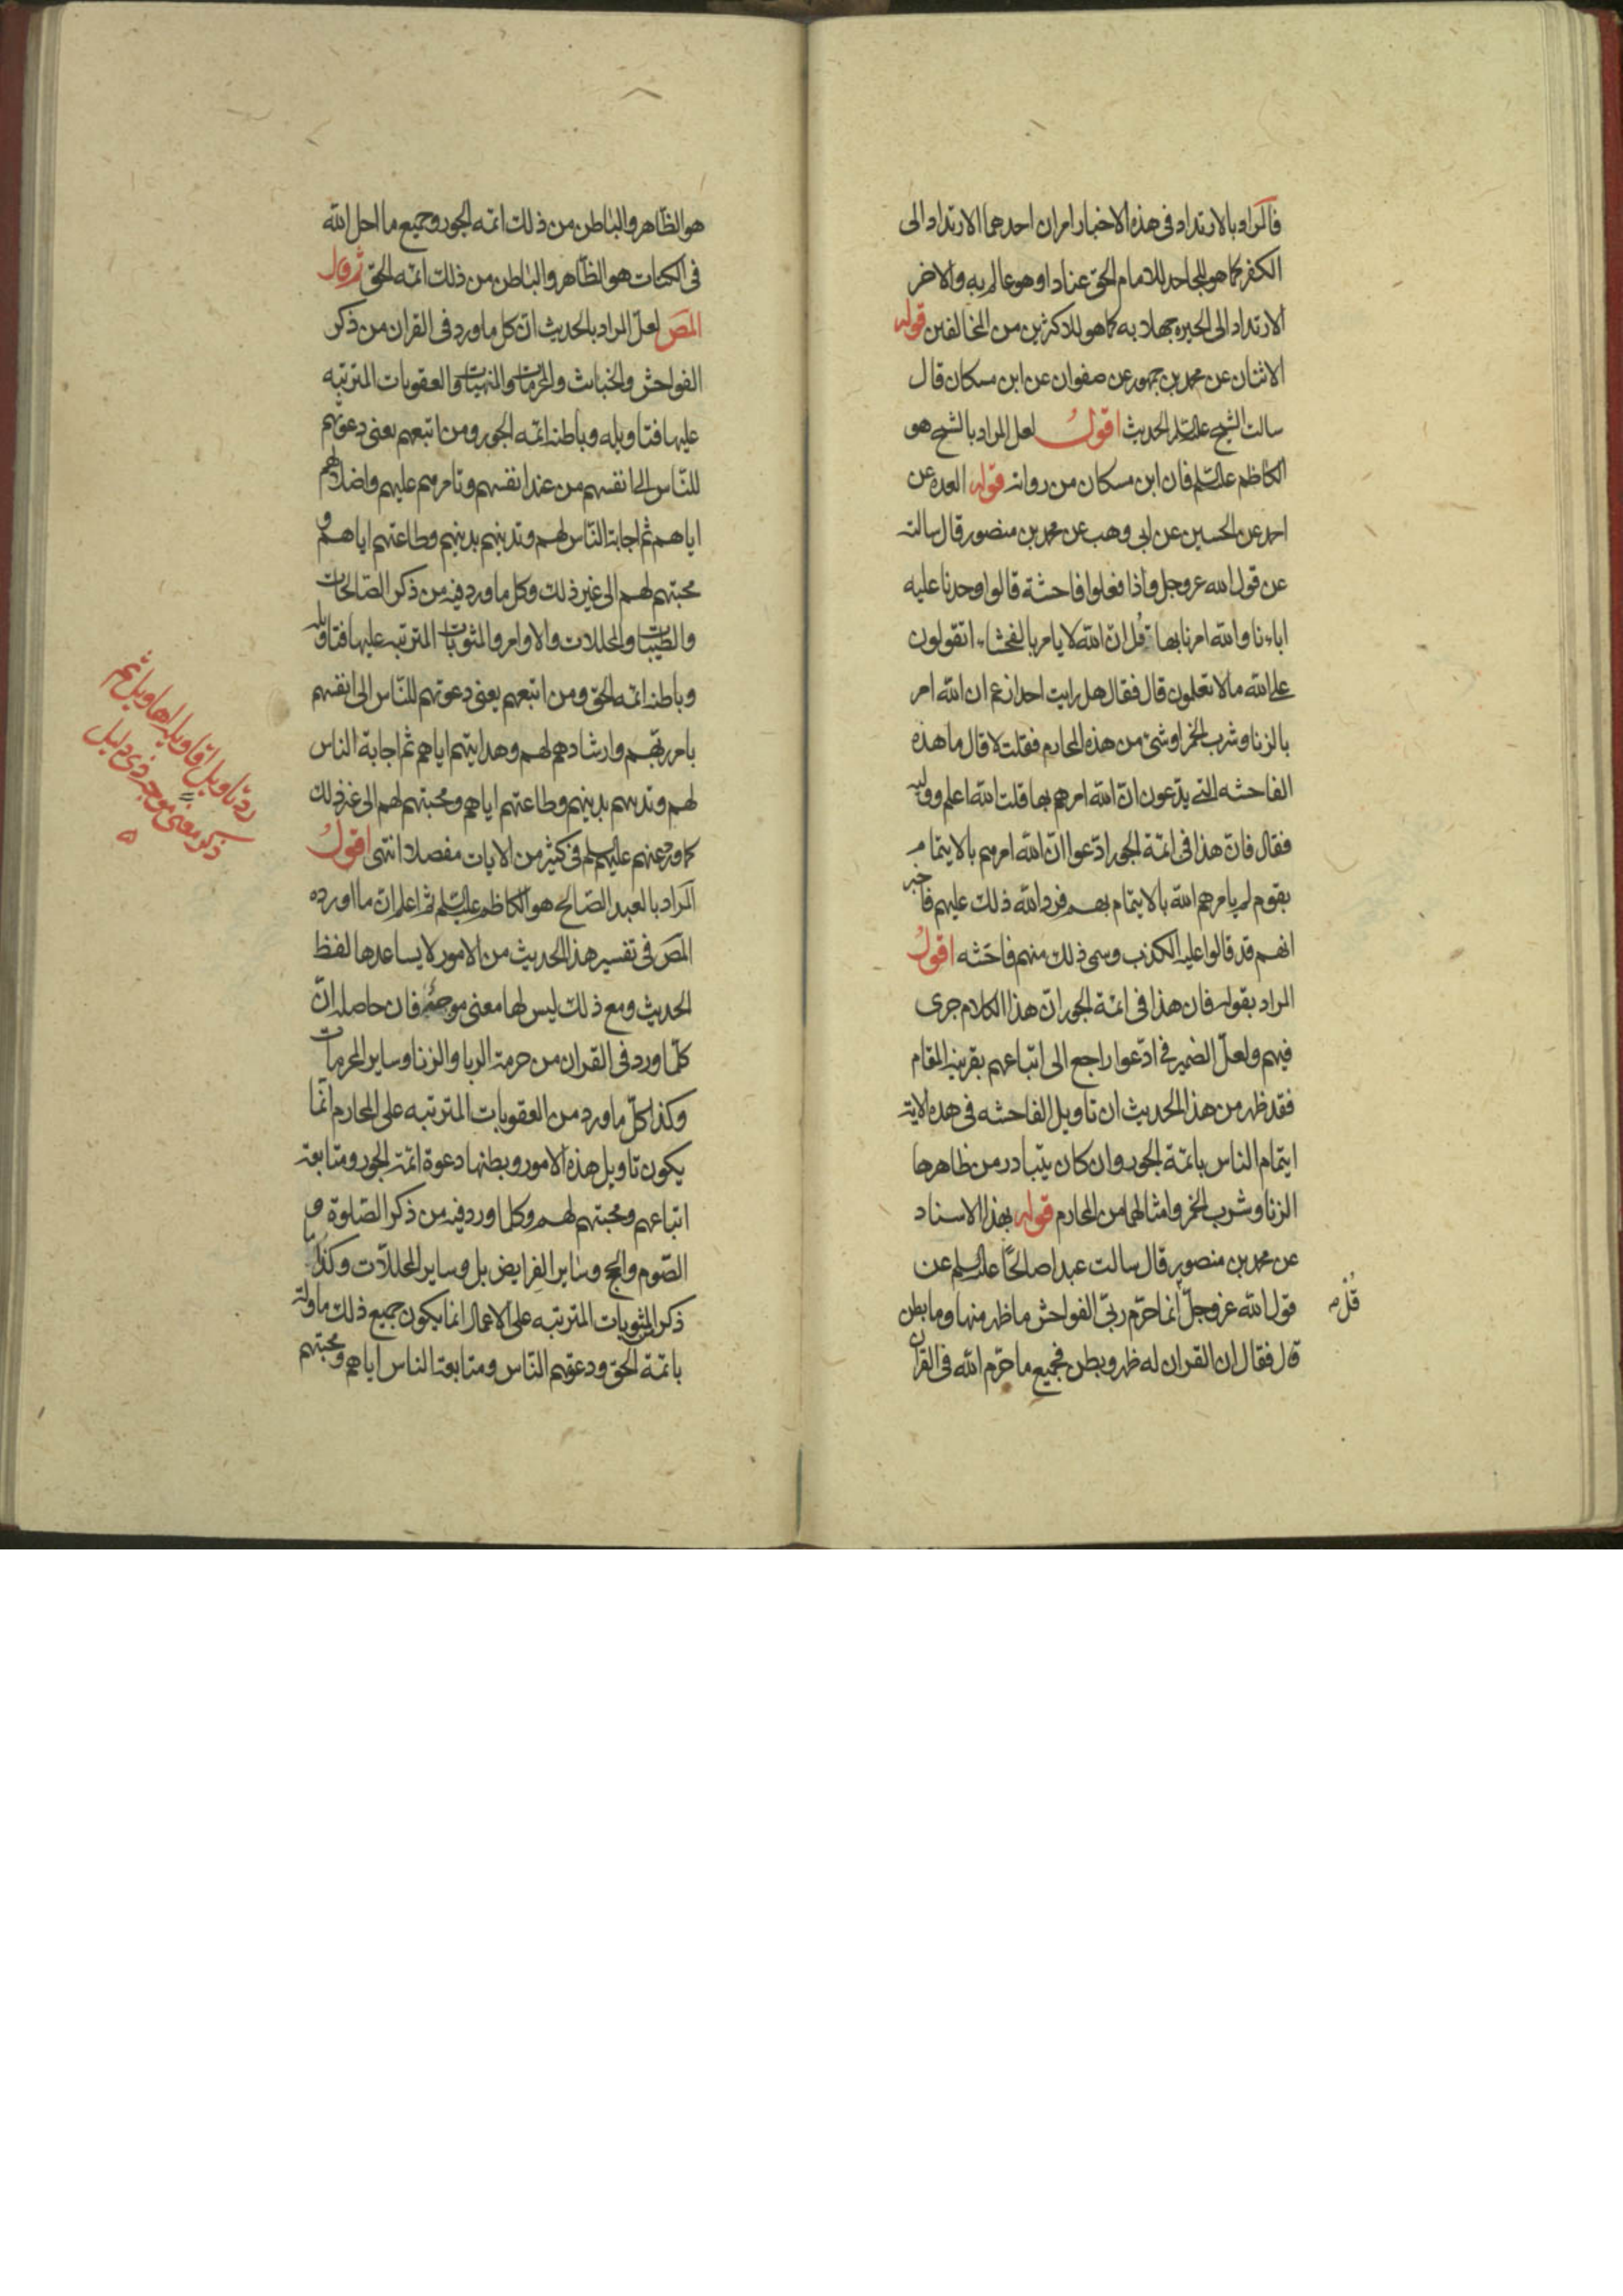 فالمراد بالارتداد فى هذه الاخبار امران احدهما الارتداد الى
الكفر كما هو للجاحد للامام الحق عنادا وهو عالم به والاخر
الارتداد الى الحيرة جهلا به كما هو للاكثرين من المخالفين قوله
الاثنان عن محمد بن جمهور عن صفوان عن ابن مسكان قال
سالت الشيخ عليه السلم الحديث اقول لعل المراد بالشيخ هو
الكاظم عليه السلم فان ابن مسكان من رواته قوله العدة عن
احمد عن الحسين عن ابى وهب عن محمد بن منصور قال سالته
عن قول الله عز وجل واذا فعلوا فاحشة قالوا وجدنا عليه
اباءنا والله امرنا بها قل ان الله لا يامر بالفحشاء اتقولون
على الله ما لا تعلمون قال فقال هل رايت احدا زعم ان الله امر
بالزنا وشرب الخمر او شئ من هذه المحارم فقلت لا قال ما هذه
الفاحشه التى يدعون ان الله امرهم بها قلت الله اعلم ووليه
فقال فان هذا فى ائمة الجور ادعوا ان الله امرهم بالايتمام
بقوم لم يامرهم الله بالايتمام بهم فرد الله ذلك عليهم فاخبر
انهم قد قالوا عليه الكذب وسمى ذلك منهم فاحشه اقول
المراد بقوله فان هذا فى ائمة الجور ان هذا الكلام جرى
فيهم ولعل الضمير فى ادعوا راجع الى اتباعهم بقرينة المقام
فقد ظهر من هذا الحديث ان تاويل الفاحشه فى هذه الاية
ايتمام الناس بائمة الجور وان كان يتبادر من ظاهرها
الزنا وشرب الخمر وامثالهما من المحارم قوله بهذا الاسناد
عن محمد بن منصور قال سالت عبدا صالحا عليه السلم عن
قول الله عز وجل انما حرم ربى الفواحش ما ظهر منها وما بطن
قال فقال ان القران له ظهر وبطن فجميع ما حرم الله فى القران
قل
هو الظاهر والباطن من ذلك ائمة الجور وجميع ما احل الله
فى الكتاب هو الظاهر والباطن من ذلك ائمة الحق ثم قال
المص لعل المراد بالحديث ان كل ما ورد فى القران من ذكر
الفواحش والخبائث والمحرمات والمنهيات والعقوبات المترتبه
عليها فتاويله وباطنه ائمة الجور ومن اتبعهم يعنى دعوتهم
للناس الى انفسهم من عند انفسهم وتامرهم عليهم واضلالهم
اياهم ثم اجابة الناس لهم وتدينهم بدينهم وطاعتهم اياهم و
محبتهم لهم الى غير ذلك وكل ما ورد فيه من ذكر الصالحات
والطيبات والمحللات والاوامر والمثوبات المترتبه عليها فتاويله
وباطنه ائمة الحق ومن اتبعهم يعنى دعوتهم للناس الى انفسهم
بامر ربهم وارشادهم لهم وهدايتهم اياهم ثم اجابة الناس
لهم وتدينهم بدينهم وطاعتهم اياهم ومحبتهم لهم الى غير ذلك
كما ورد عنهم عليهم السلم فى كثير من الايات مفصلا انتهى اقول
المراد بالعبد الصالح هو الكاظم عليه السلم ثم اعلم ان ما اورده
المص فى تفسير هذا الحديث من الامور لا يساعدها لفظ
الحديث ومع ذلك ليس لها معنى موجه فان حاصله ان
كلما ورد فى القران من حرمة الربا والزنا وساير المحرمات
وكذا كل ما ورد من العقوبات المترتبه على المحارم انما
يكون تاويل هذه الامور وبطنها دعوة ائمة الجور ومتابعة
اتباعهم ومحبتهم لهم وكلما ورد فيه من ذكر الصلوة و
الصوم والحج وساير الفرايض بل وساير المحللات وكذا
ذكر المثوبات المترتبه على الاعمال انما يكون جميع ذلك ماولة
بائمة الحق ودعوتهم الناس ومتابعة الناس اياهم ومحبتهم
ذكر معنى موجه ذى دليل